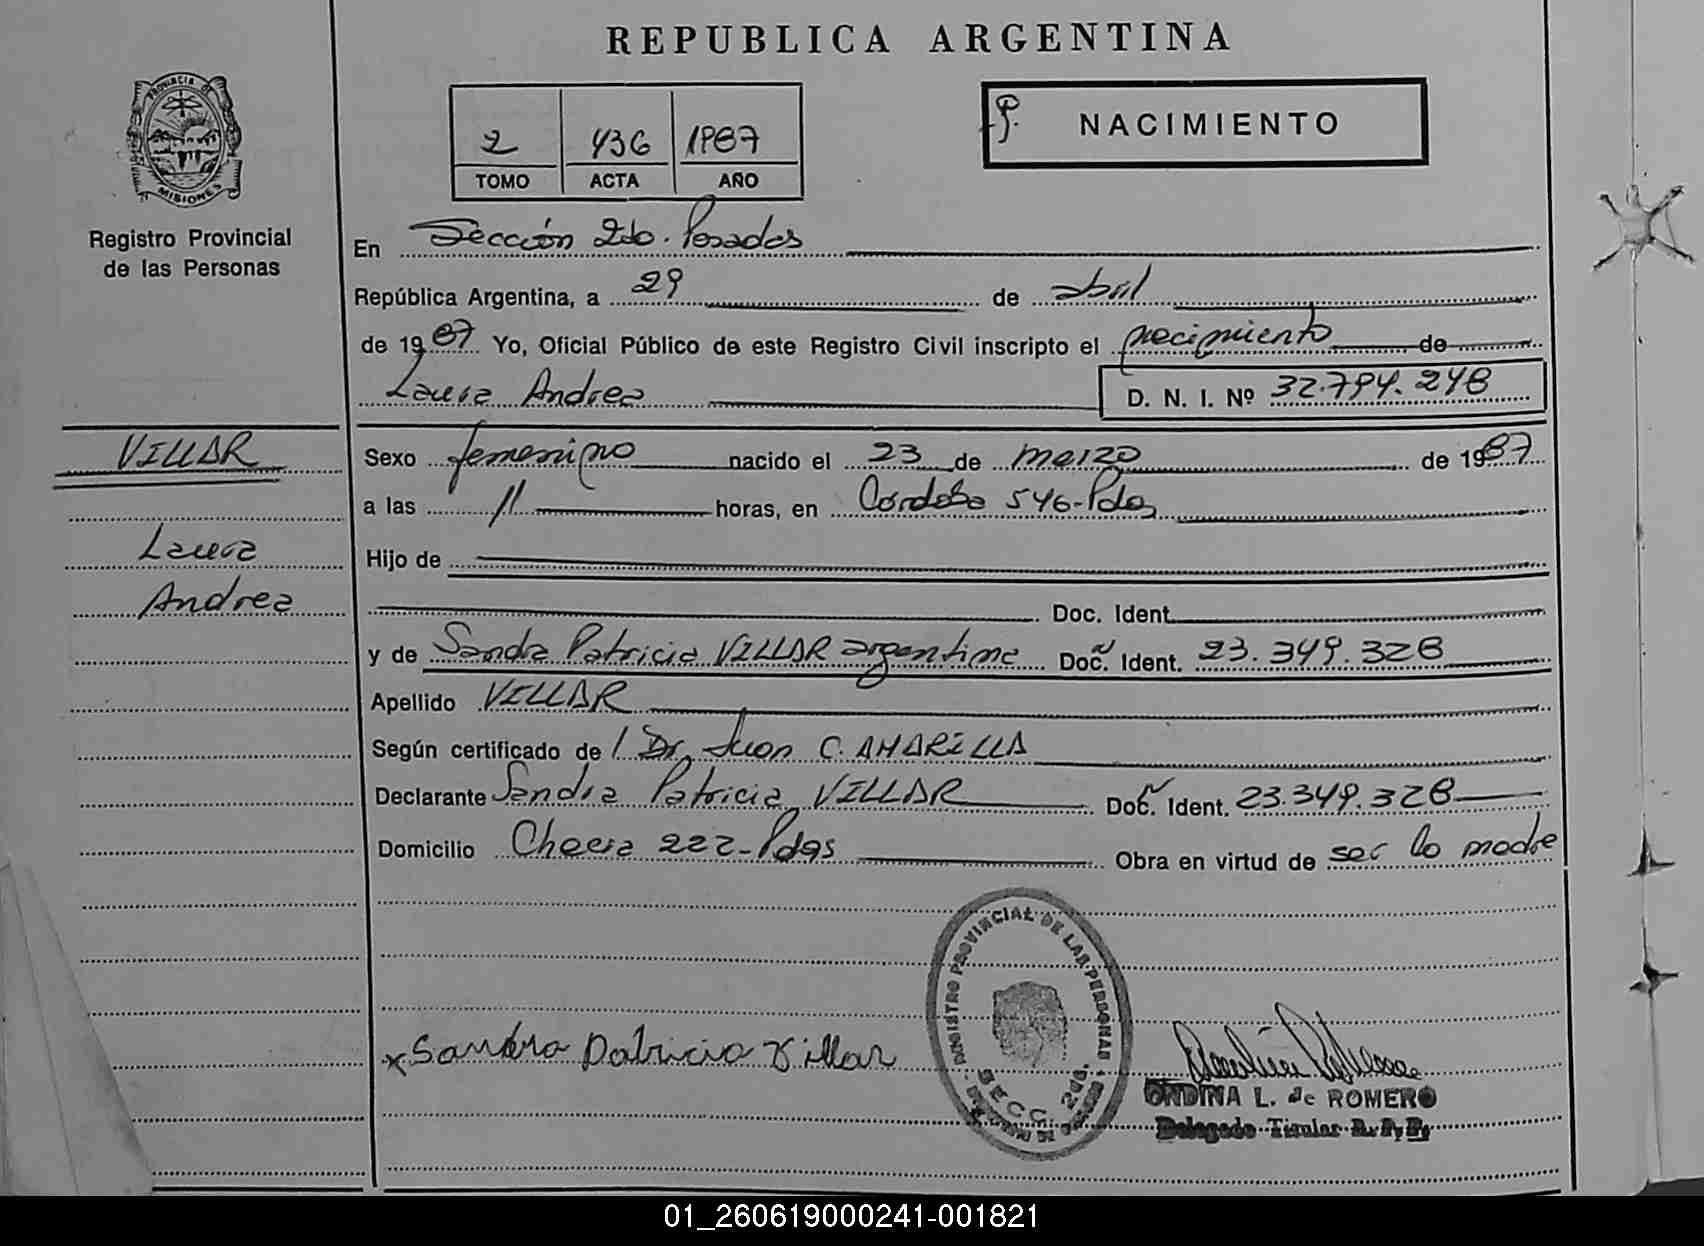 REPUBLICA ARGENTINA
PROVINCIA DE
MISIONES
Registro Provincial
de las Personas
2 436 1987
TOMO ACTA AÑO
NACIMIENTO
En Sección 2da. Posadas
República Argentina, a 29 de abril
de 1987 Yo, Oficial Público de este Registro Civil inscripto el nacimiento de
Laura Andrea D. N. I. Nº 32.794.248
VILLAR
Laura
Andrea
Sexo femenino nacido el 23 de marzo de 1987
a las 11 horas, en Córdoba 546-Pdas
Hijo de
Doc. Ident.
y de Sandra Patricia VILLAR argentina Doc. Ident. 23.349.328
Apellido VILLAR
Según certificado de / Dr. Juan C. AMARILLA
Declarante Sandra Patricia VILLAR Doc. Ident. 23.349.328
Domicilio 222-Pdas Obra en virtud de ser la madre
REGISTRO PROVINCIAL DE LAS PERSONAS
SECC. 2da.
x Sandra Patricia Villar
ONDINA L. de ROMERO
Delegado Titular R. P. P.
01_260619000241-001821